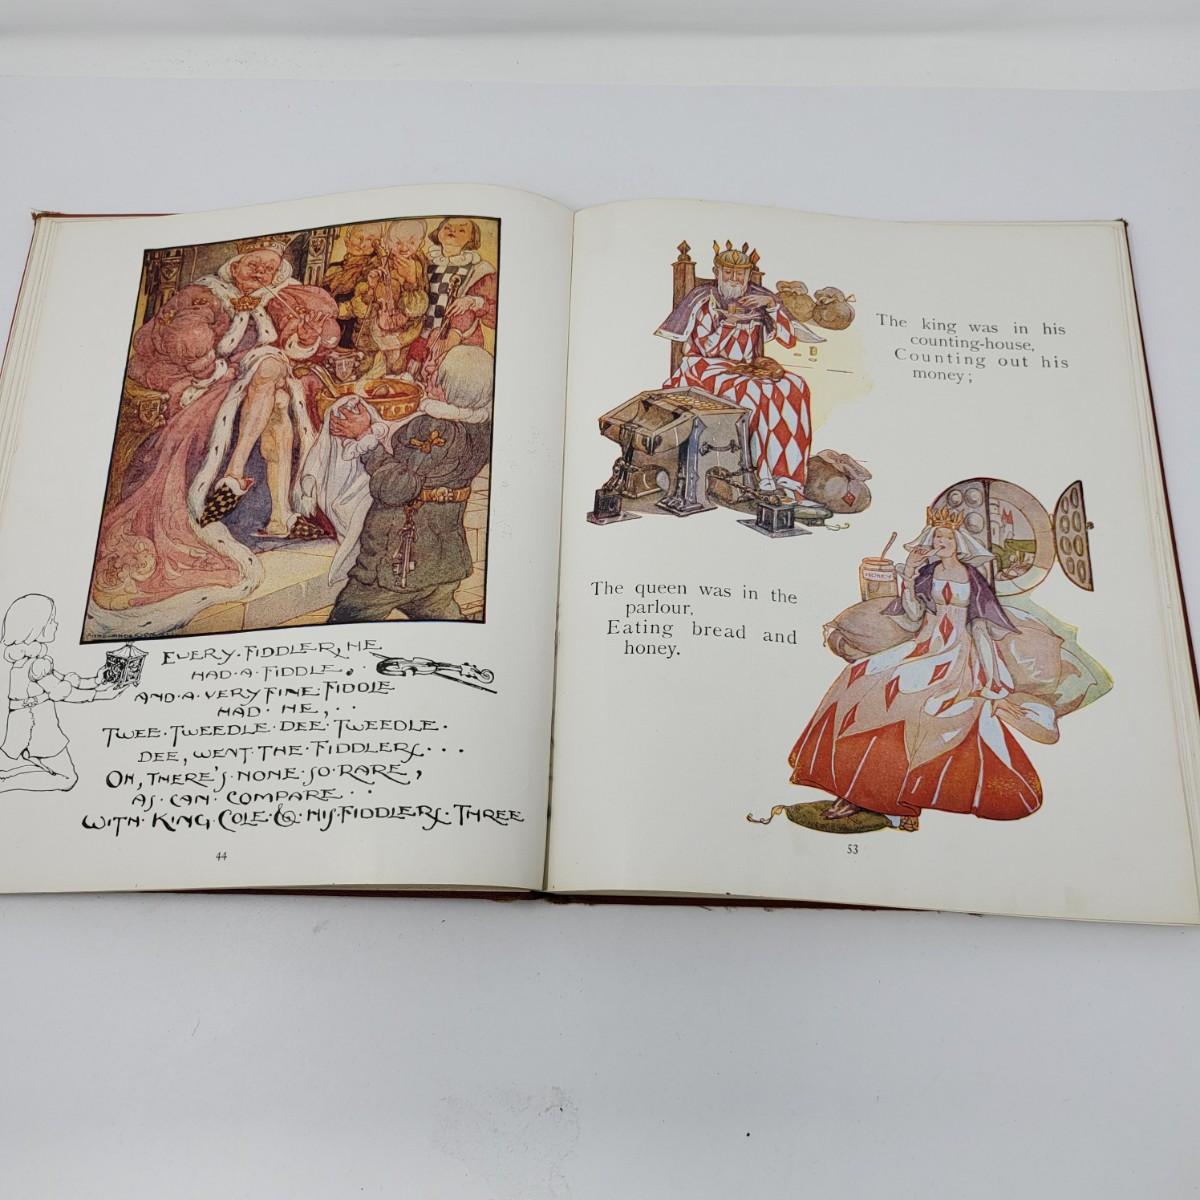 EVERY·FIDDLER, HE
HAD·A·FIDDLE,
AND·A·VERY FINE·FIDDLE
HAD· HE, ··
TWEE·TWEEDLE·DEE·TWEEDLE·
DEE, WENT·THE·FIDDLERS···
OH, THERE'S·NONE·SO·RARE,
AS·CAN·COMPARE··
WITH·KING·COLE·&·HIS·FIDDLERS·THREE
44
The king was in his
counting-house,
Counting out his
money;
HONEY
The queen was in the
parlour,
Eating bread and
honey.
53